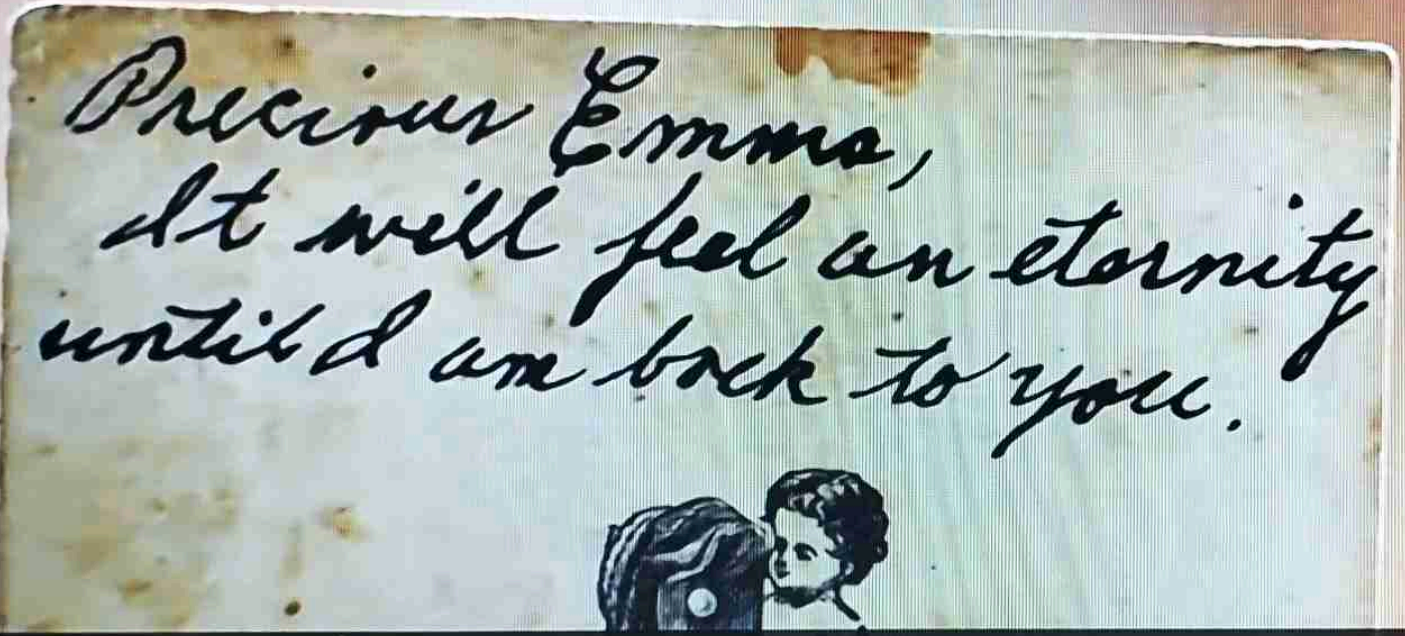 Precious Emma,
It will feel an eternity
until I am back to you.